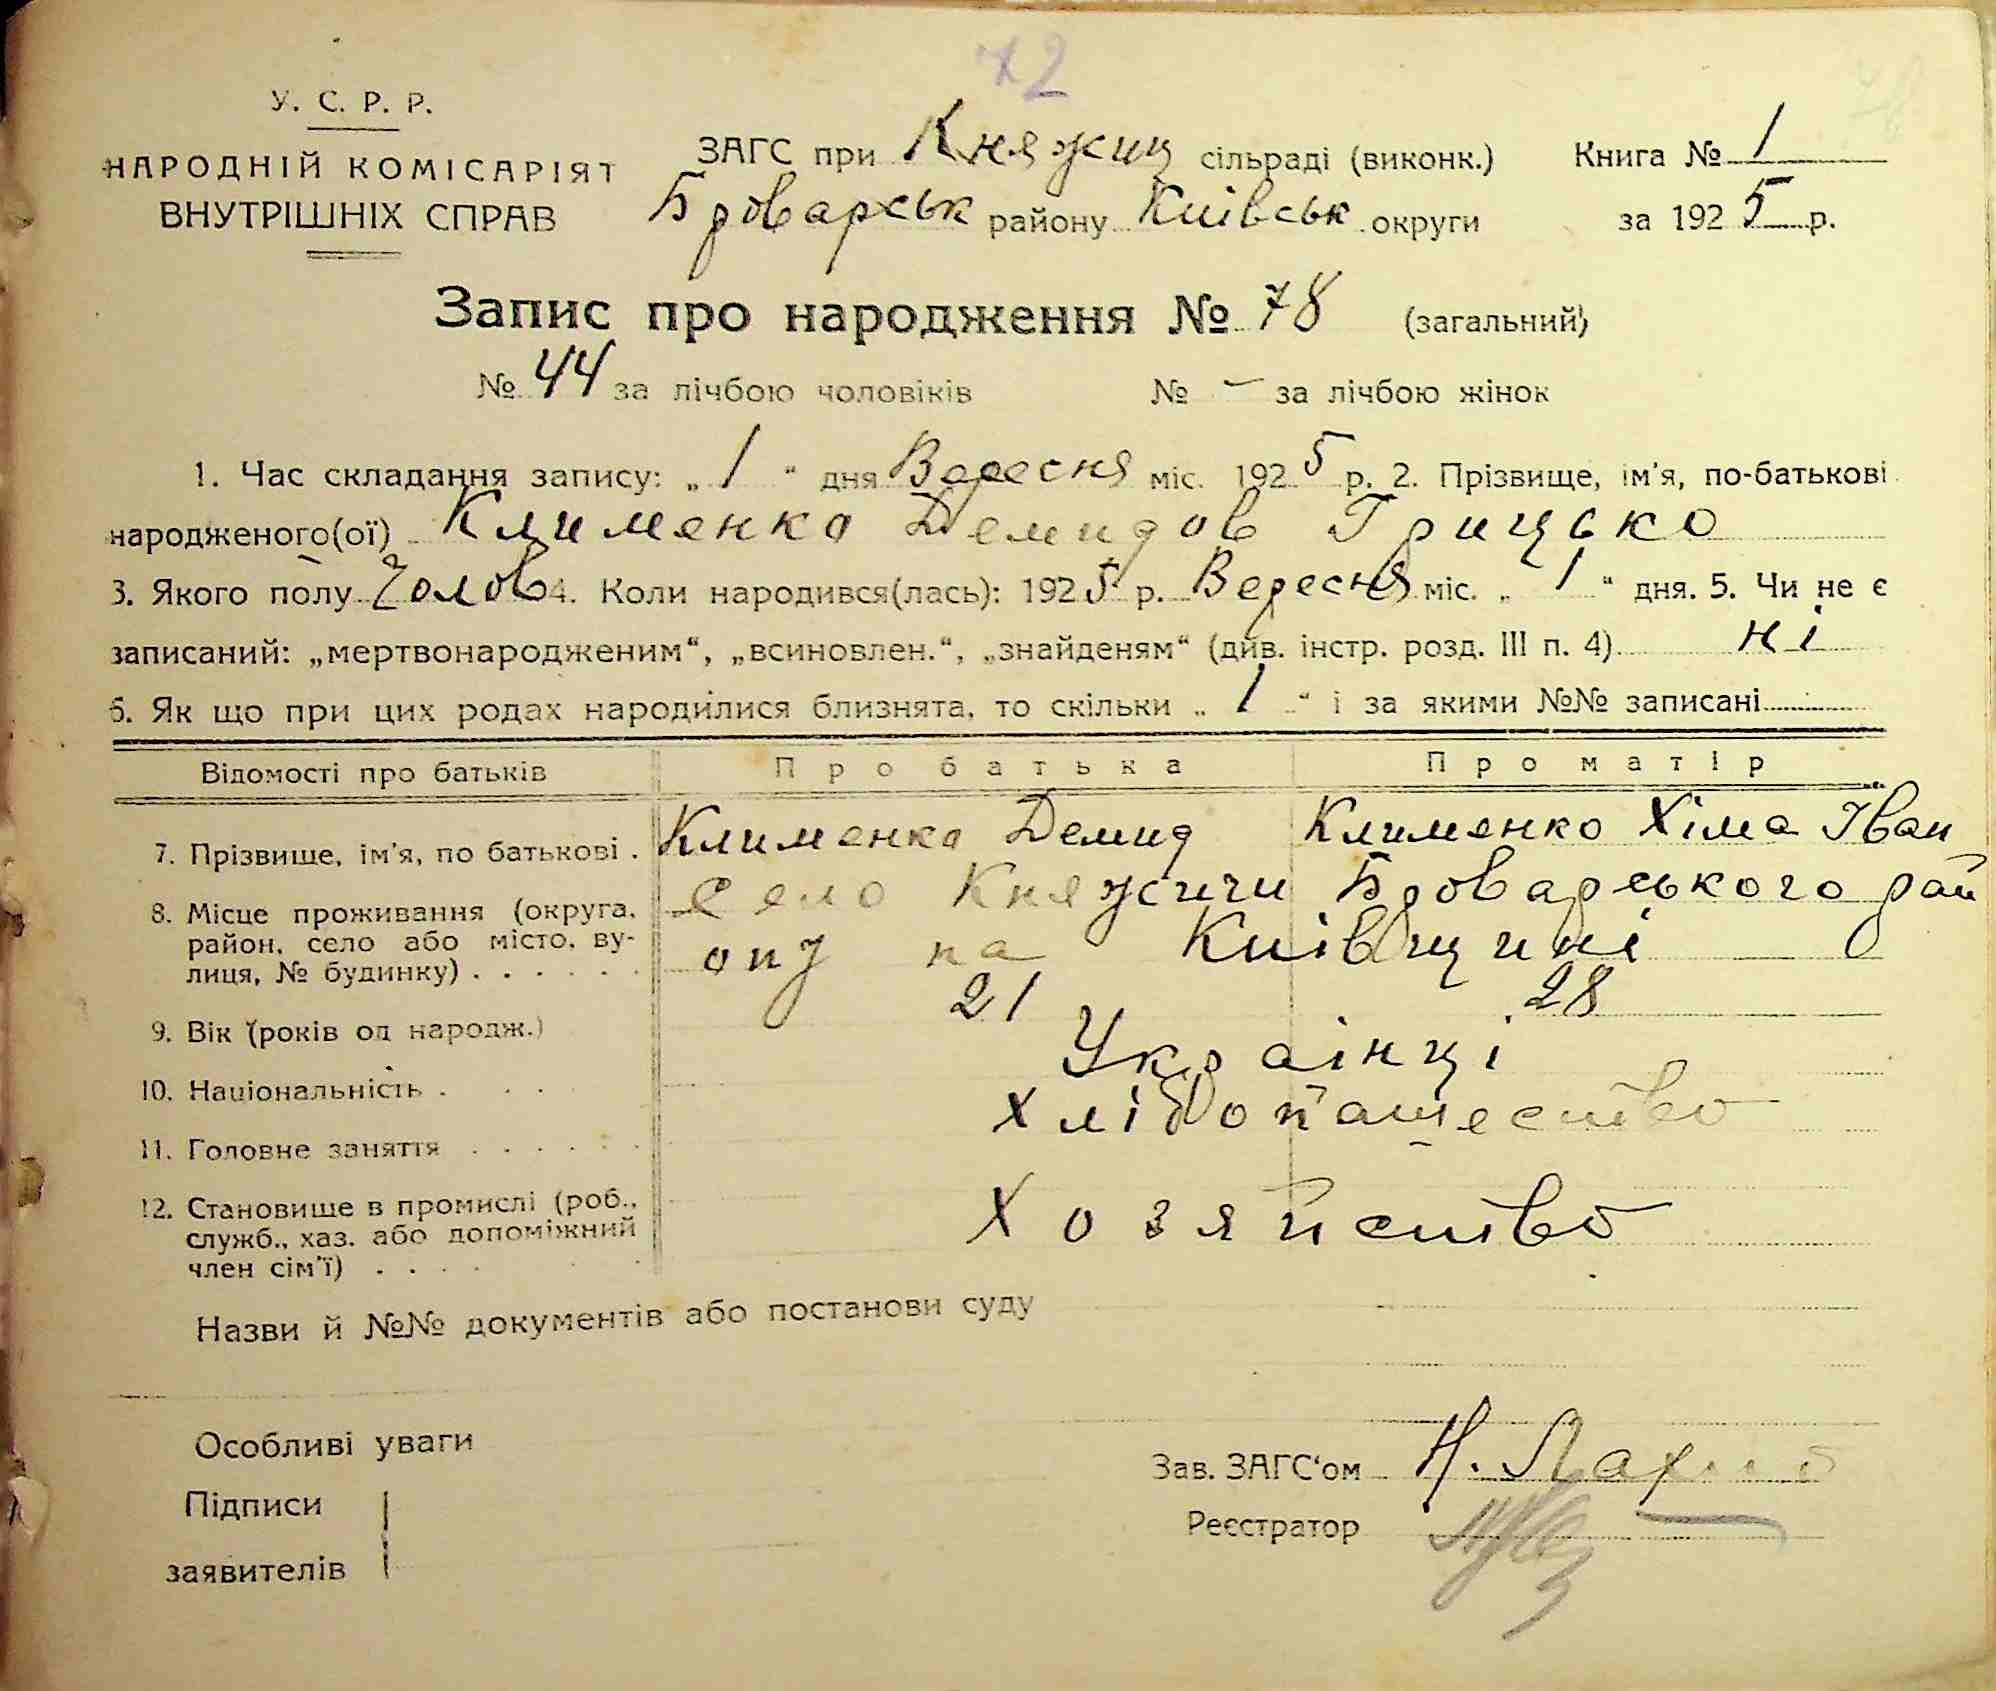 72
У. С. Р. Р.
НАРОДНІЙ КОМІСАРІЯТ
ВНУТРІШНІХ СПРАВ
ЗАГС при Княжиц сільраді (виконк.) Книга № 1
Броварськ району Київськ округи за 1925 р.
Запис про народження № 78 (загальний)
№ 44 за лічбою чоловіків № – за лічбою жінок
1. Час складання запису: „1“ дня Вересня міс. 1925 р. 2. Прізвище, ім'я, по-батькові
народженого(ої) Клименко Демидов Грицько
3. Якого полу Чолов 4. Коли народився(лась): 1925 р. Вересня міс. „1“ дня. 5. Чи не є
записаний: „мертвонародженим“, „всиновлен.“, „знайденям“ (див. інстр. розд. III п. 4) ні
6. Як що при цих родах народилися близнята, то скільки „1“ і за якими №№ записані
Відомості про батьків Про батька Про матір
7. Прізвище, ім'я, по батькові . Клименко Демид Клименко Хіма Іван
8. Місце проживання (округа, район, село або місто, вулиця, № будинку) . . . . . . село Княжичи Броварського рай
ону на Київщині
9. Вік (років од народж.) 21 28
10. Національність . . . Українці
11. Головне заняття . . . . . . Хлібопашество
12. Становище в промислі (роб., служб., хаз. або допоміжний член сім'ї) . . . . Хозяйство
Назви й №№ документів або постанови суду
Особливі уваги
Зав. ЗАГС‘ом Н.
Підписи
Реєстратор
заявителів